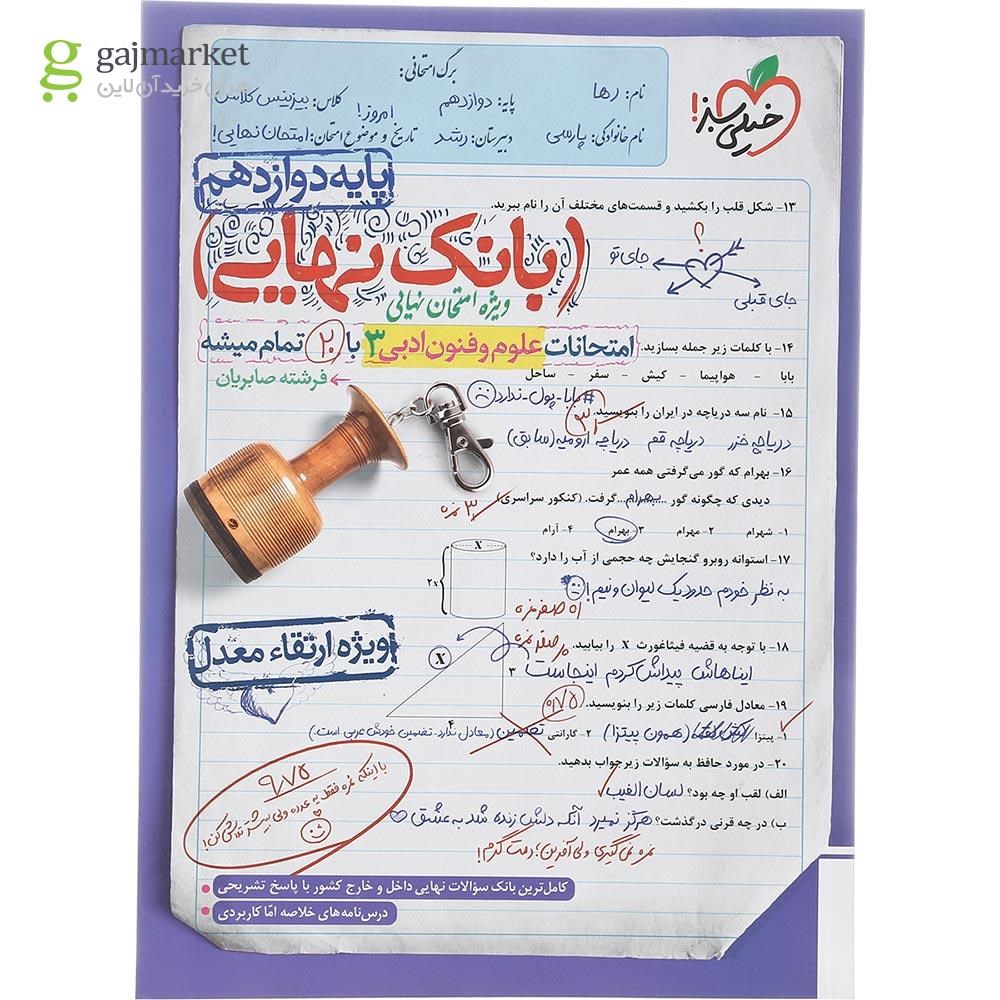 gajmarket
مرکز خرید آن لاین
خیلی سبز!
برگ امتحانی:
نام: رها
پایه: دوازدهم
کلاس: بیزینس کلاس
امروز!
نام خانوادگی: پارسی
دبیرستان: رشد
تاریخ و موضوع امتحان: امتحان نهایی!
پایه دوازدهم
۱۳- شکل قلب را بکشید و قسمت‌های مختلف آن را نام ببرید.
؟
جای تو
جای قبلی
(بانک نهایی)
ویژه امتحان نهایی
امتحانات علوم و فنون ادبی ۳ با ۲۰ تمام میشه
فرشته صابریان
۱۴- با کلمات زیر جمله بسازید.
بابا - هواپیما - کیش - سفر - ساحل
#بابا-پول-ندارد
۱۵- نام سه دریاچه در ایران را بنویسید.
۳
دریاچه خزر دریاچه قم دریاچه ارومیه (سابق)
۱۶- بهرام که گور می‌گرفتی همه عمر
دیدی که چگونه گور ...بهرام... گرفت. (کنکور سراسری)
۳ نمره
۱- شهرام ۲- مهرام ۳- بهرام ۴- آرام
۱۷- استوانه روبرو گنجایش چه حجمی از آب را دارد؟
X
۲x
به نظر خودم حدود یک لیوان و نیم!
اه صفر نمره
۱۸- با توجه به قضیه فیثاغورث X را بیابید.
صفر نمره
ایناهاش پیداش کردم اینجاست
X
۳
۴
ویژه ارتقاء معدل
۱۹- معادل فارسی کلمات زیر را بنویسید.
۰/۷۵
۱- پیتزا (همون پیتزا) ۲- گارانتی تضمین (معادل ندارد. تضمین خودش عربی است.)
۲۰- در مورد حافظ به سؤالات زیر جواب بدهید.
الف) لقب او چه بود؟ لسان الغیب
ب) در چه قرنی درگذشت؟ هرگز نمیرد آنکه دلش زنده شد به عشق
نمره نمی‌گیری ولی آفرین؛ دمت گرم!
۹/۷۵
با اینکه نمره فقط یه عدده ولی بیشتر تلاش کن!
کامل‌ترین بانک سؤالات نهایی داخل و خارج کشور با پاسخ تشریحی
درس‌نامه‌های خلاصه امّا کاربردی